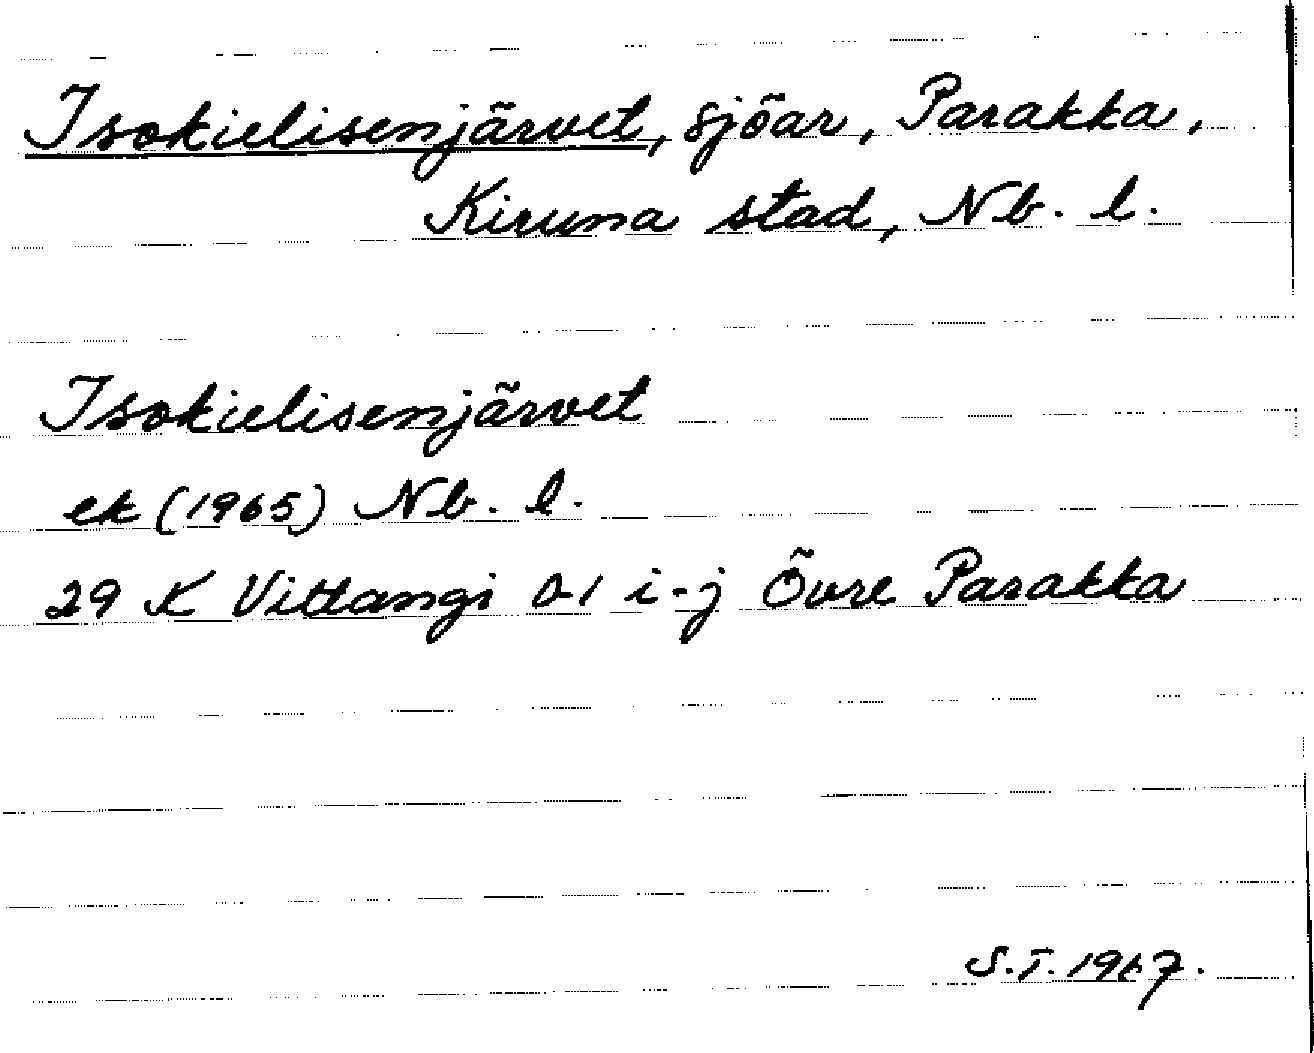 Isokielisenjärvet, sjöar, Parakka,
Kiruna stad, Nb. l.
Isokielisenjärvet
ek (1965) Nb. l.
29 K Vittangi 0-1 i-j Övre Parakka
S.T. 1967.